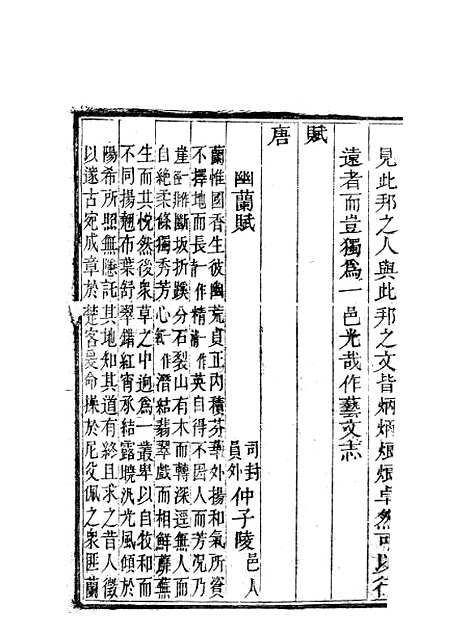 見此邦之人與此邦之文皆炳炳烺烺卓然可以行
遠者而豈獨為一邑光哉作藝文志
賦
唐
幽蘭賦 司封員外仲子陵邑人
蘭惟國香生彼幽荒貞正內積芬華外揚和氣所資
不擇地而長精一作靜一作英自得不因人而芳況乃
崖斷坂折蹊分石裂山有木而轉深逕無人而
自絕柔條獨秀芳心潛結翡翠戲而相鮮蘼蕪
生而共悅然後衆草之中迥為一叢卑以自牧和而
不同揚翹布葉舒翠錯紅宵承結露曉汎光風傾於
陽希所照無隱託其地知其道有終且求之昔人徵
以遂古宛成章於楚客命操於尼父佩之衆匪蘭